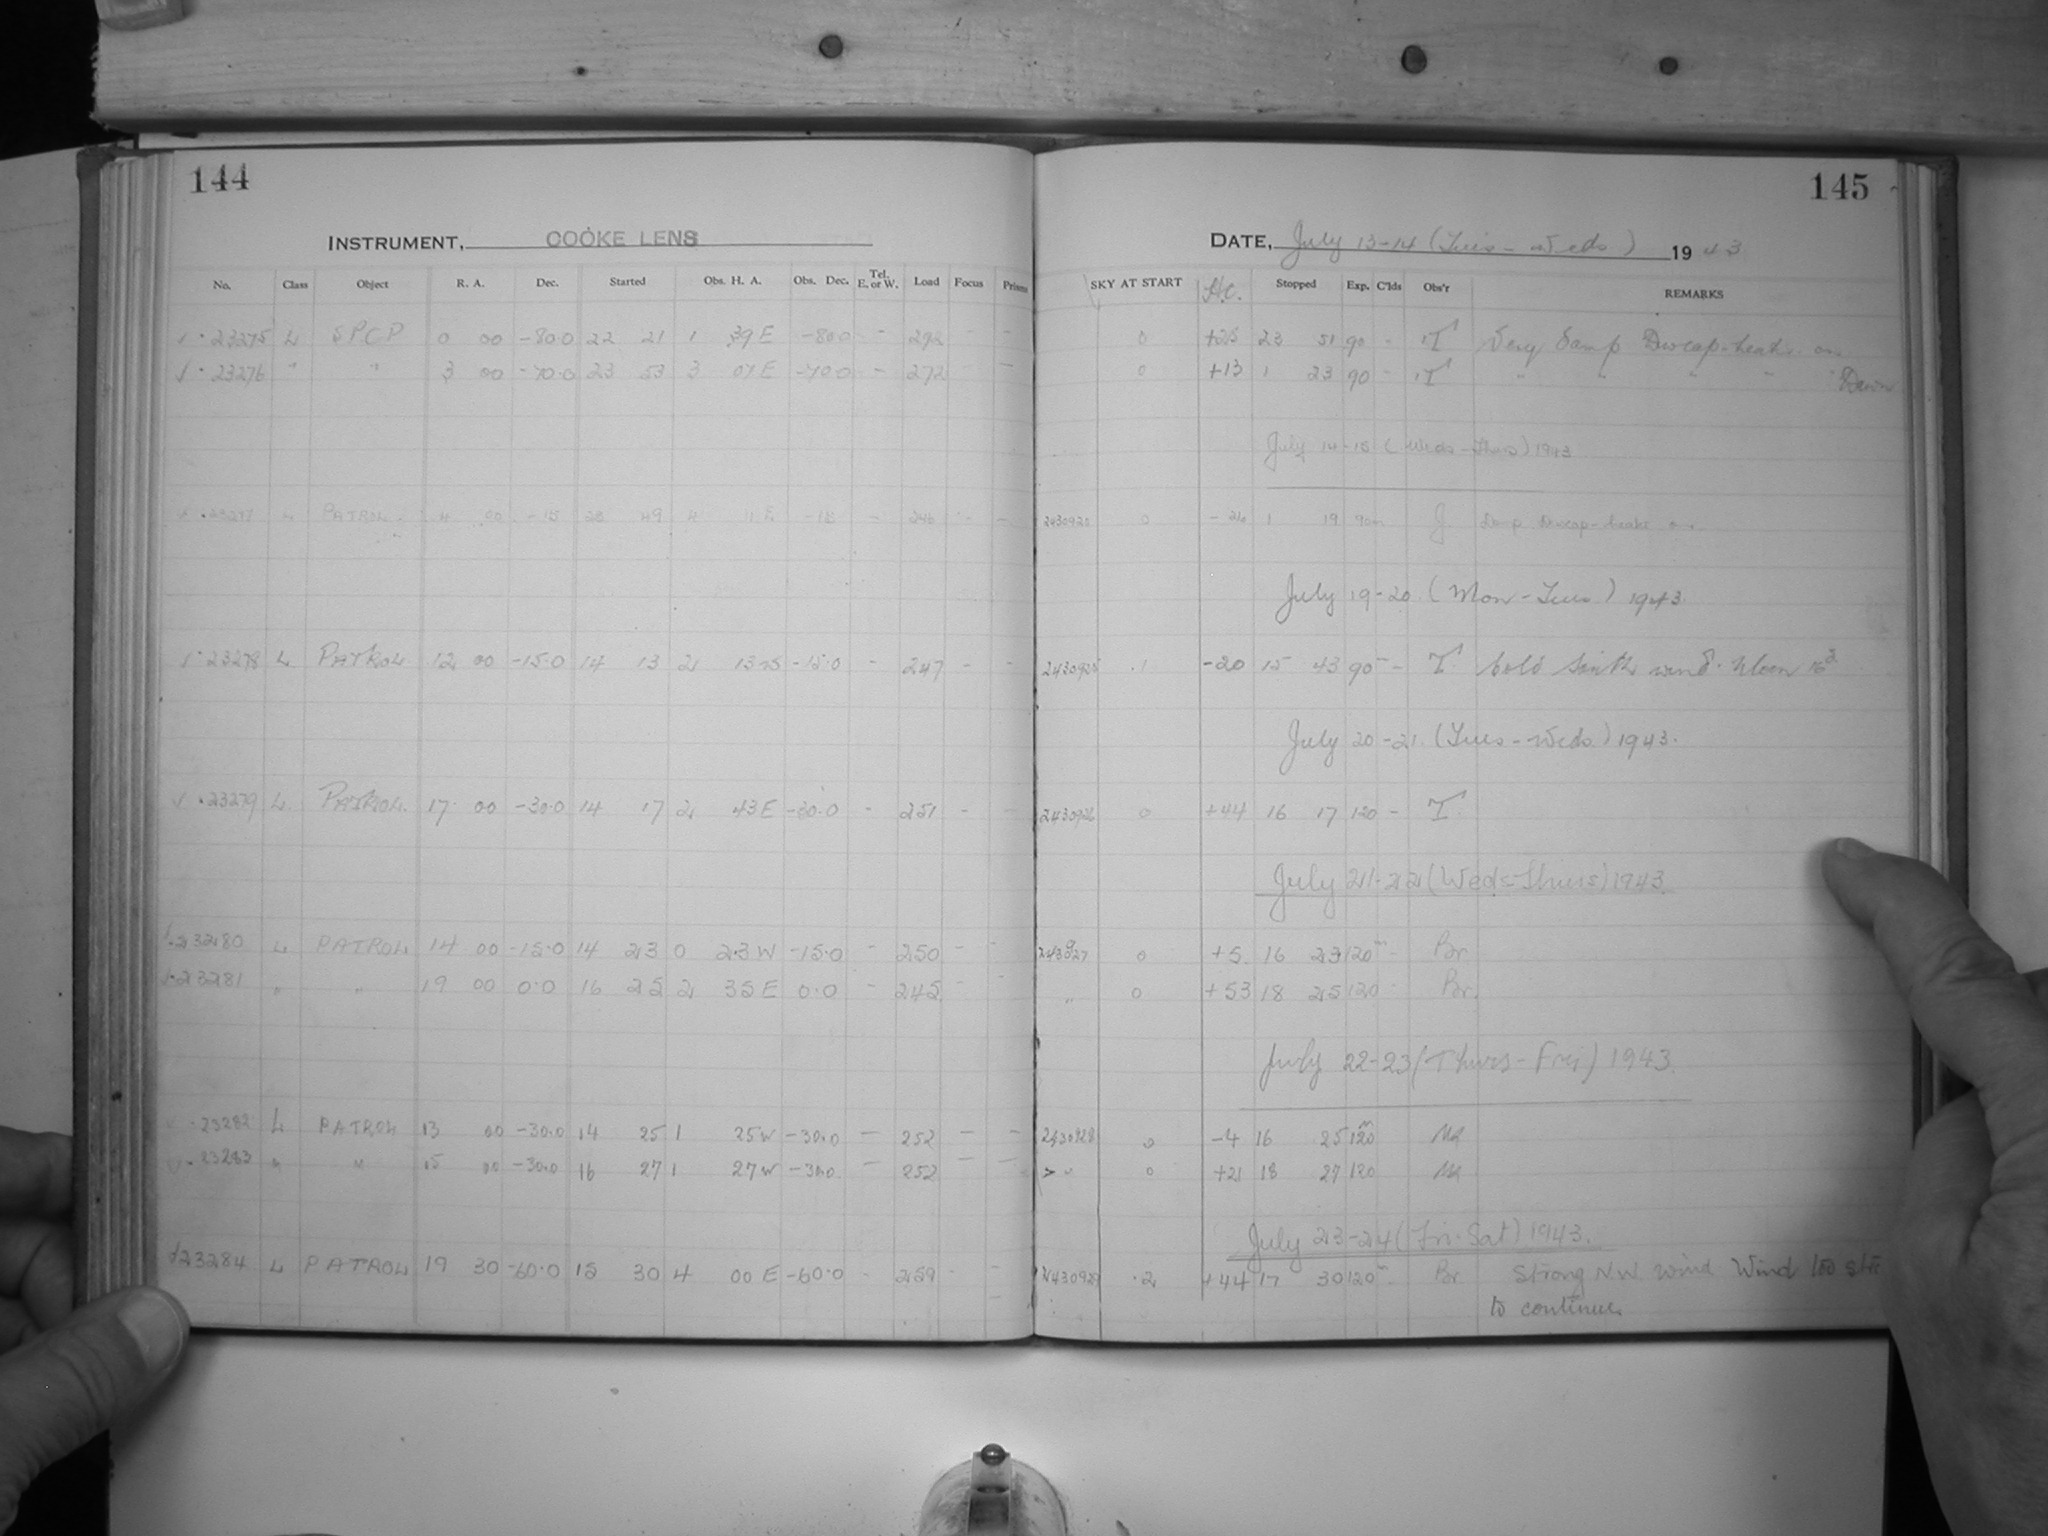 144
INSTRUMENT, COOKE LENS
No. Class Object R. A. Dec. Started Obs. H. A. Obs. Dec. Tel. E. or W. Load Focus Prism
✓ · 23275 L SPCP 0 00 -80.0 22 21 1 39 E -80.0 - 292 - -
✓ · 23276 " " 3 00 -70.0 23 53 3 07 E -70.0 - 272 - -
PATROL 4 00 -15 49 4 11 E -15 - 246 - -
✓ · 23278 L PATROL 12 00 -15.0 14 13 2 -15.0 - 247 - -
✓ · 23279 L PATROL 17 00 -30.0 14 17 2 43 E -30.0 - 251 - -
✓ · 23280 L PATROL 14 00 -15.0 14 23 0 23 W -15.0 - 250 - -
✓ · 23281 " " 19 00 0.0 16 25 2 35 E 0.0 - 245 - -
✓ · 23282 L PATROL 13 00 -30.0 14 25 1 25 W -30.0 - 252 - -
✓ · 23283 " " 15 00 -30.0 16 27 1 27 W -30.0 - 252 - -
✓ 23284 L PATROL 19 30 -60.0 15 30 4 00 E -60.0 - 259 - -
145
DATE, July 13-14 (Tues - Weds) 1943
SKY AT START H.C. Stopped Exp. C'lds Obs'r REMARKS
0 23 51 90 - T Very Damp Dewcap-heater on
0 +13 1 23 90 - T " " " " " Dawn
July 14-15 (Weds-Thurs) 1943
2430920 0 -26 1 19 90m J Damp Dewcap-heater on
July 19-20 (Mon-Tues) 1943
2430925 .1 -20 15 43 90 - T Cold South wind. Moon
July 20-21 (Tues-Weds) 1943.
2430926 0 +44 16 17 120 - T
July 21-22 (Weds-Thurs) 1943.
0 +5 16 23 120m - Br
" 0 +53 18 25 120 - Br.
July 22-23 (Thurs-Fri) 1943.
2430928 0 -4 16 25 120m
" 0 +21 18 27 120
July 23-24 (Fri-Sat) 1943.
2430929 .2 +44 17 30 120m - Br Strong N.W. wind Wind too
to continue